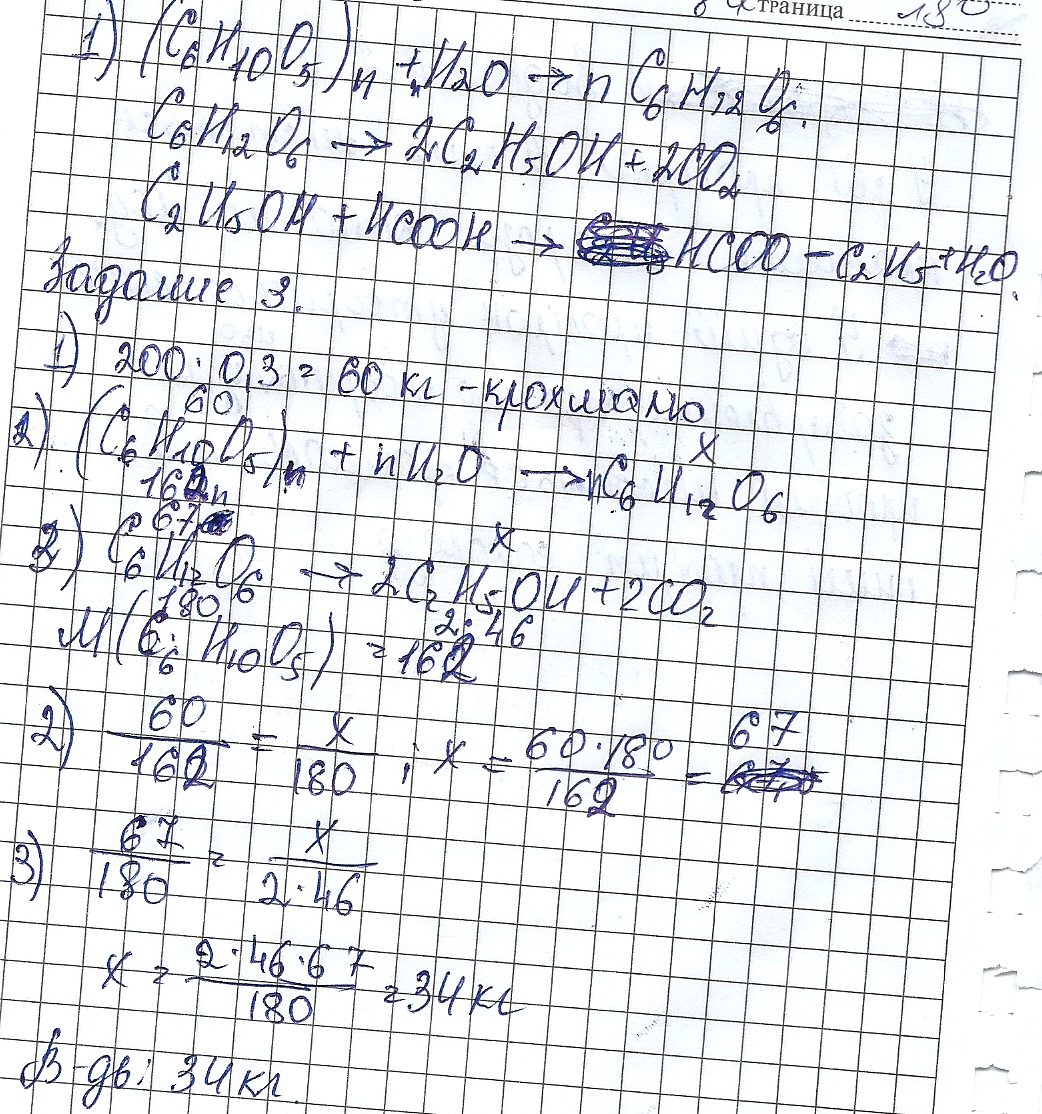 Страница 180
1) (C6H10O5)n + nH2O → n C6H12O6.
C6H12O6 → 2C2H5OH + 2CO2
C2H5OH + HCOOH → HCOO – C2H5 + H2O.
Задание 3.
1) 200 · 0,3 = 60 кг – крохмалю
60 x
2). (C6H10O5)n + nH2O → nC6H12O6
162n
67 x
3) C6H12O6 → 2C2H5OH + 2CO2
180 2·46
M(C6H10O5) = 162
2) 60/162 = x/180 ; x = 60·180/162 = 67
3) 67/180 = x/2·46
x = 2·46·67/180 = 34 кг
В-дь: 34 кг.